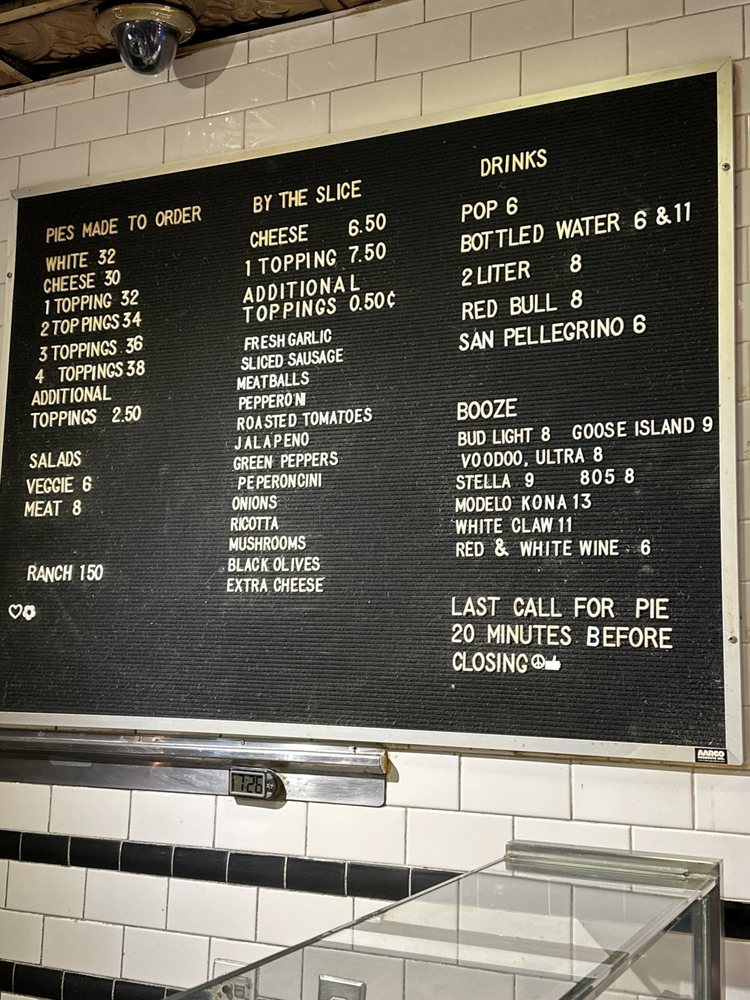 PIES MADE TO ORDER
WHITE 32
CHEESE 30
1 TOPPING 32
2 TOPPINGS 34
3 TOPPINGS 36
4 TOPPINGS 38
ADDITIONAL
TOPPINGS 2.50
SALADS
VEGGIE 6
MEAT 8
RANCH 150
BY THE SLICE
CHEESE 6.50
1 TOPPING 7.50
ADDITIONAL
TOPPINGS 0.50¢
FRESH GARLIC
SLICED SAUSAGE
MEATBALLS
PEPPERONI
ROASTED TOMATOES
JALAPENO
GREEN PEPPERS
PEPERONCINI
ONIONS
RICOTTA
MUSHROOMS
BLACK OLIVES
EXTRA CHEESE
DRINKS
POP 6
BOTTLED WATER 6 & 11
2 LITER 8
RED BULL 8
SAN PELLEGRINO 6
BOOZE
BUD LIGHT 8 GOOSE ISLAND 9
VOODOO, ULTRA 8
STELLA 9 805 8
MODELO KONA 13
WHITE CLAW 11
RED & WHITE WINE 6
LAST CALL FOR PIE
20 MINUTES BEFORE
CLOSING
AARCO
7:26